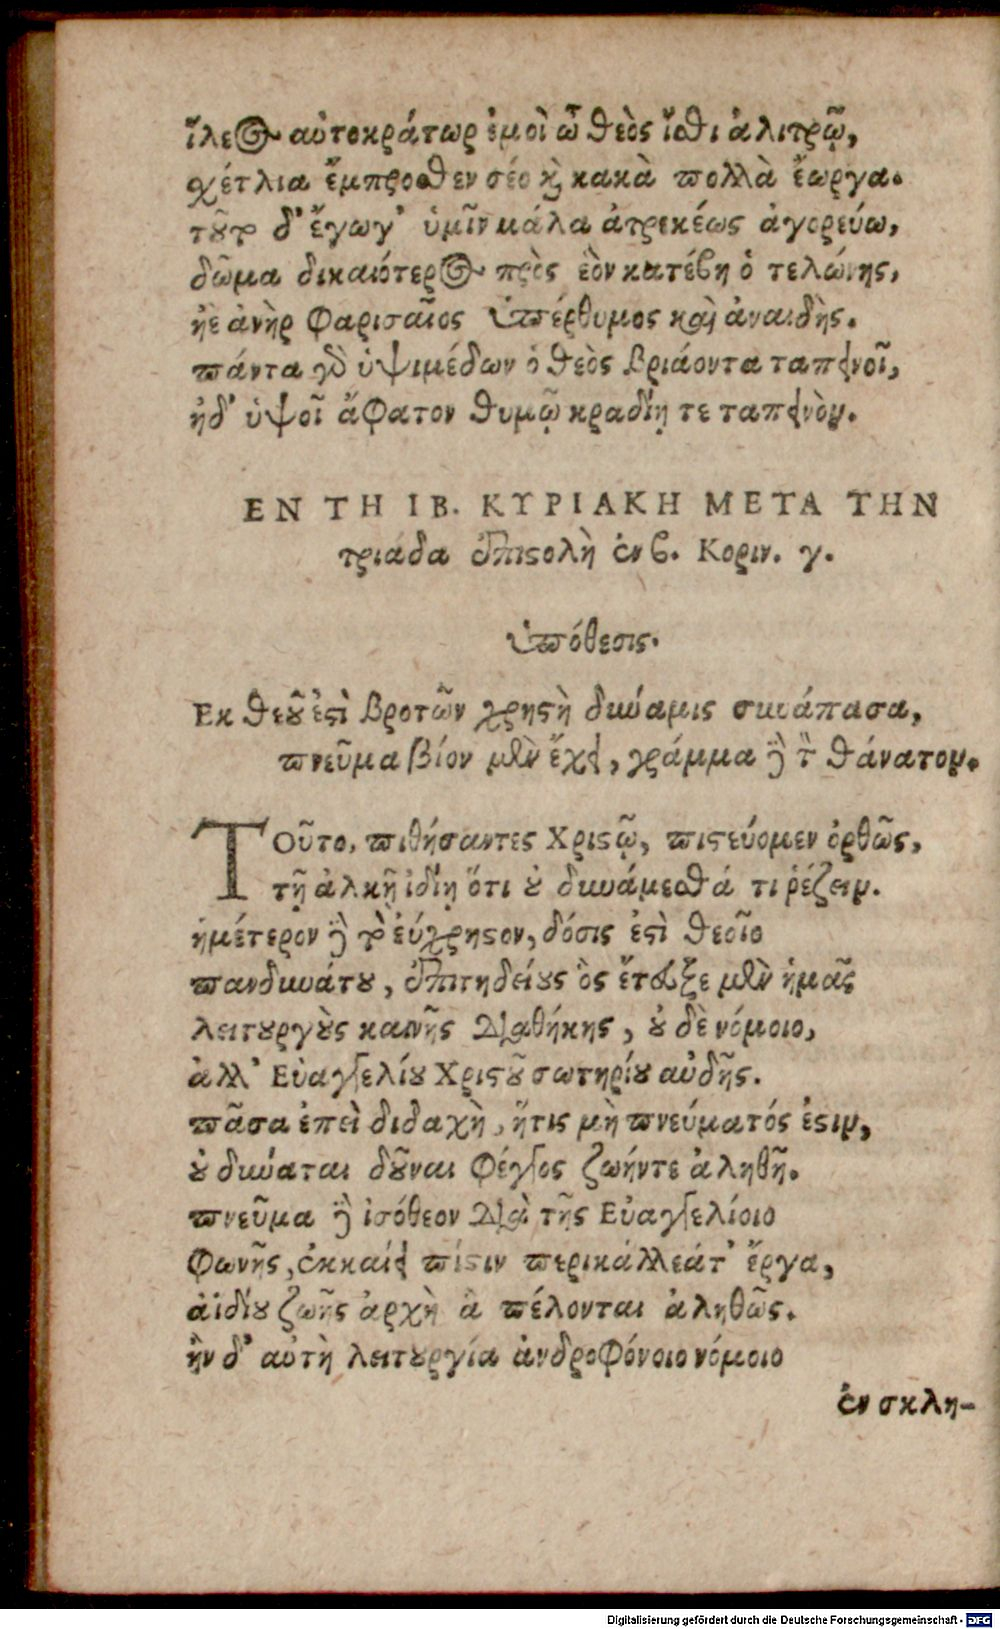 ἵλεος αὐτοκράτωρ ἐμοὶ ὦ θεὸς ἴσθι ἀλιτρῷ,
σχέτλια ἔμπροσθεν σέο καὶ κακὰ πολλὰ ἔωργα.
τοῦτο δ' ἔγωγ' ὑμῖν μάλα ἀτρεκέως ἀγορεύω,
δῶμα δικαιότερος πρὸς ἑὸν κατέβη ὁ τελώνης,
ἠὲ ἀνὴρ Φαρισαῖος ὑπέρθυμος καὶ ἀναιδὴς.
πάντα γὰρ ὑψιμέδων ὁ θεὸς βριάοντα ταπεινοῖ,
ἠδ' ὑψοῖ ἄφατον θυμῷ κραδίῃ τε ταπεινὸν.
ΕΝ ΤΗ ΙΒ. ΚΥΡΙΑΚΗ ΜΕΤΑ ΤΗΝ
τριάδα ἐπιστολὴ ἐν β. Κοριν. γ.
ὑπόθεσις.
Ἐκ θεοῦ ἐστὶ βροτῶν χρηστὴ δύναμις συνάπασα,
πνεῦμα βίον μὲν ἔχει, γράμμα δὲ τὸ θάνατον.
Τοῦτο, πιθήσαντες Χριστῷ, πιστεύομεν ὀρθῶς,
τῇ ἀλκῇ ἰδίῃ ὅτι οὐ δυνάμεσθά τι ῥέζειν.
ἡμέτερον δὲ τὸ εὔχρηστον, δόσις ἐστὶ θεοῖο
πανδυνάτου, ἐπιτηδείους ὃς ἔταξε μὲν ἡμᾶς
λειτουργοὺς καινῆς διαθήκης, οὐ δὲ νόμοιο,
ἀλλ' Εὐαγγελίου Χριστοῦ σωτηρίου αὐδῆς.
πᾶσα ἐπεὶ διδαχὴ, ἥτις μὴ πνεύματός ἐστιν,
οὐ δύναται δοῦναι φέγγος ζωήν τε ἀληθῆ.
πνεῦμα δὲ ἰσόθεον διὰ τῆς Εὐαγγελίοιο
φωνῆς, ἐκκαίει πίστιν περικάλλεά τ' ἔργα,
ἀϊδίου ζωῆς ἀρχὴ ἃ πέλονται ἀληθῶς.
ἢν δ' αὐτὴ λειτουργία ἀνδροφόνοιο νόμοιο
ἐν σκλη-
Digitalisierung gefördert durch die Deutsche Forschungsgemeinschaft - DFG